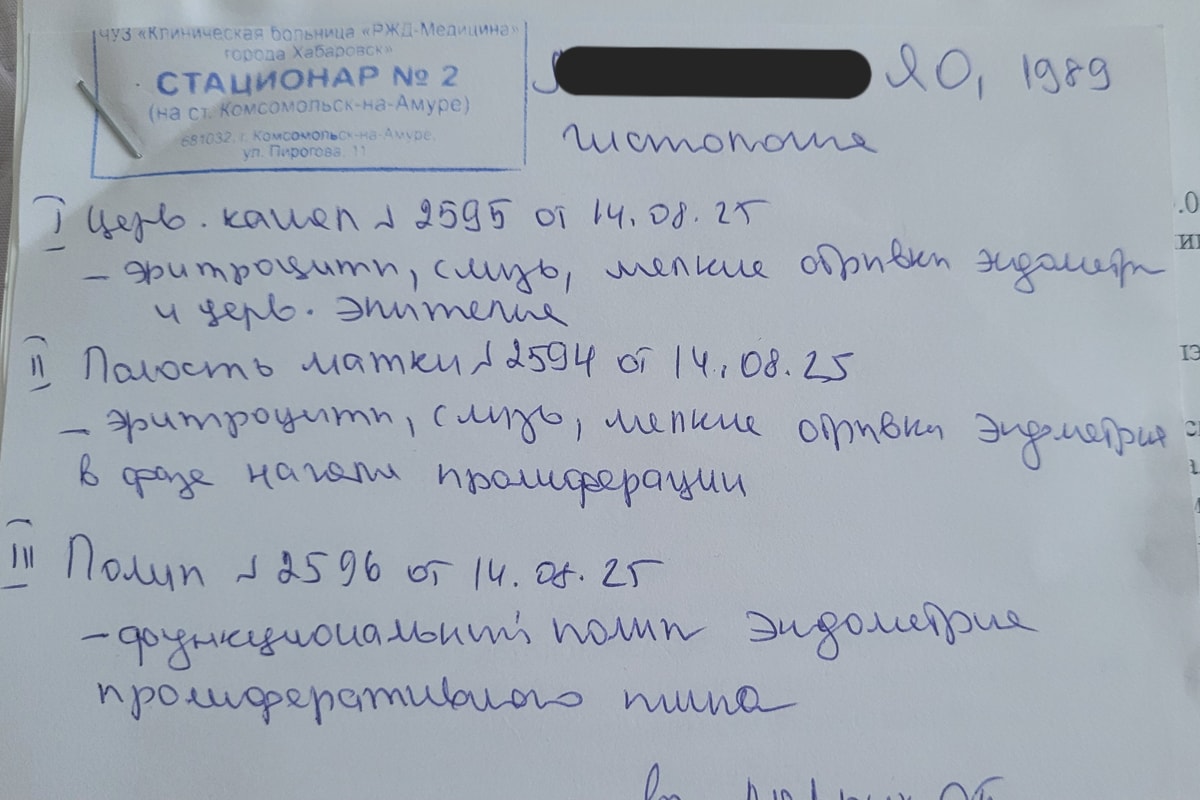 ЧУЗ «Клиническая больница «РЖД-Медицина»
города Хабаровск»
СТАЦИОНАР № 2
(на ст. Комсомольск-на-Амуре)
681032, г. Комсомольск-на-Амуре,
ул. Пирогова, 11
Я.О, 1989
Гистология
I Церв. канал № 2595 от 14.08.25
- эритроциты, слизь, мелкие обрывки эндометр
и церв. эпителия
II Полость матки № 2594 от 14.08.25
- эритроциты, слизь, мелкие обрывки эндометрия
в фазе начала пролиферации
III Полип № 2596 от 14.08.25
- функциональный полип эндометрия
пролиферативного типа